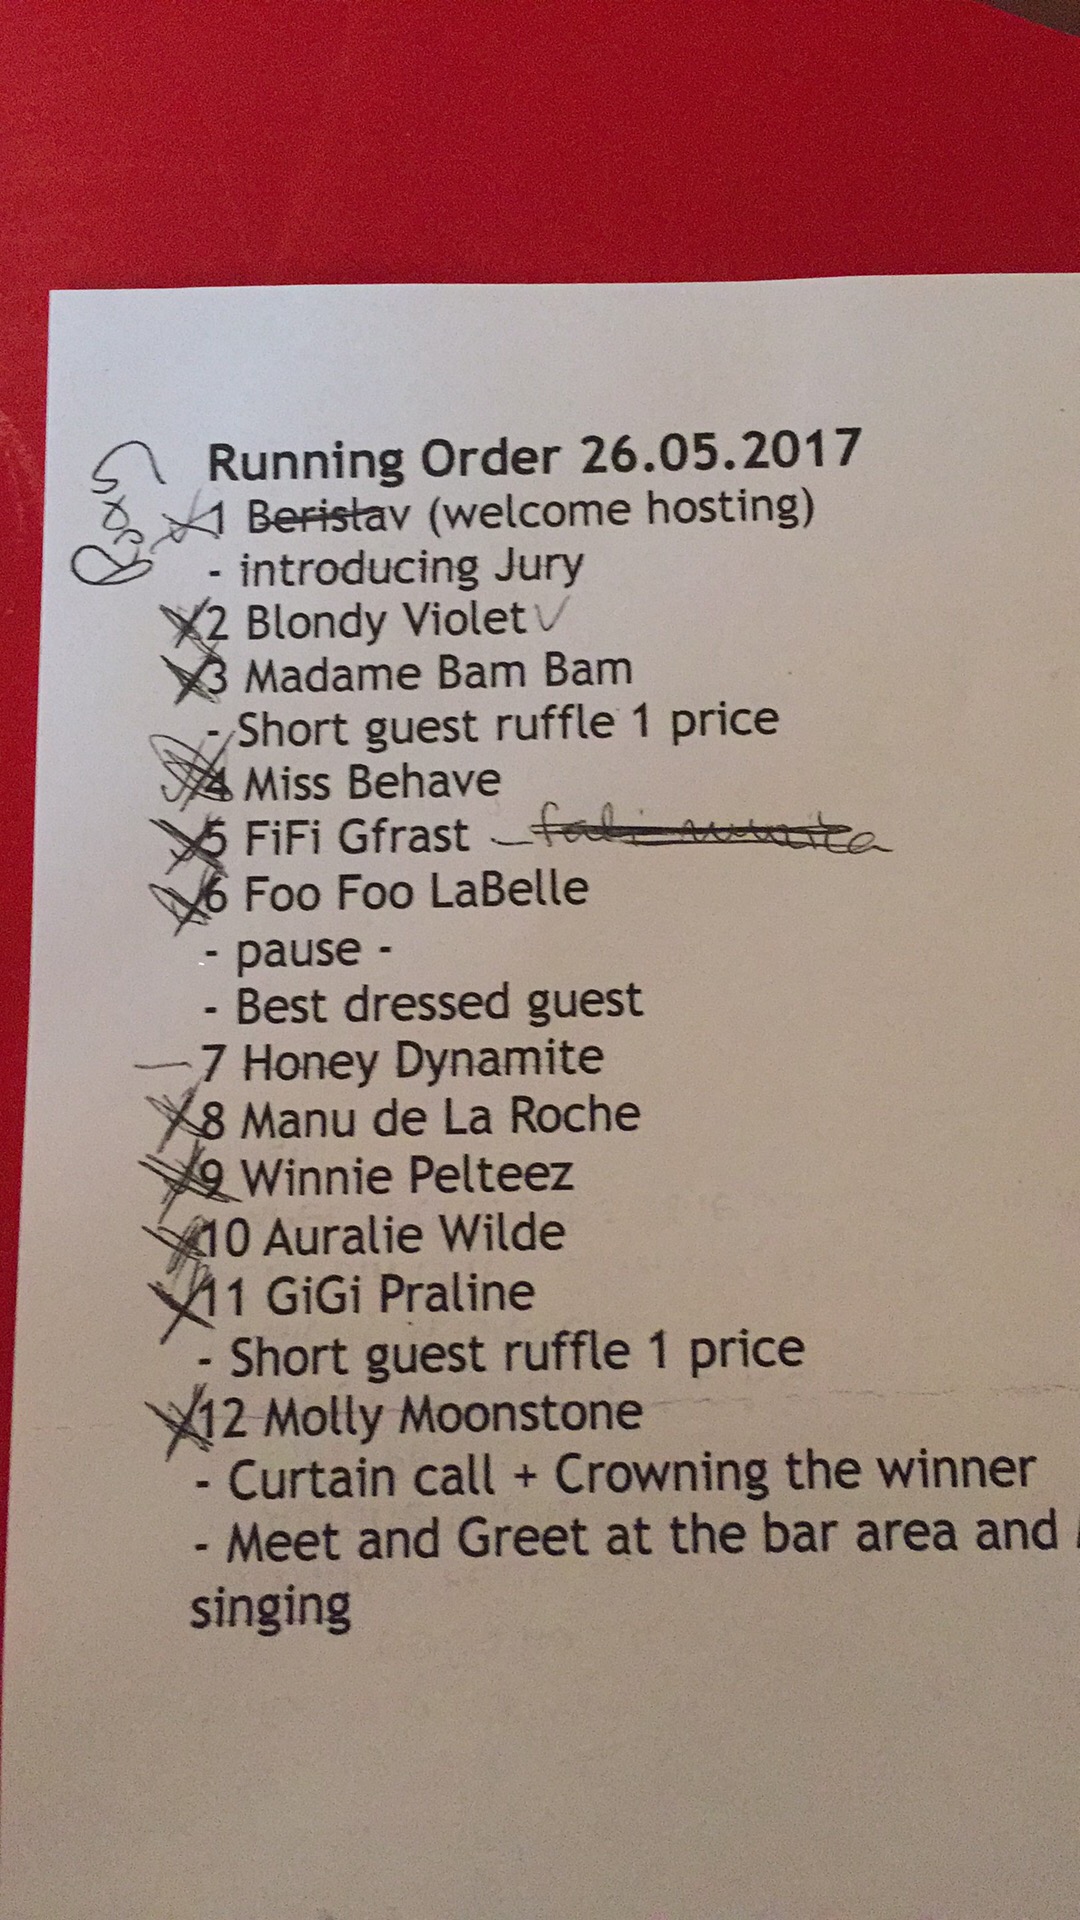 Running Order 26.05.2017
1 Berislav (welcome hosting)
- introducing Jury
2 Blondy Violet
3 Madame Bam Bam
- Short guest ruffle 1 price
4 Miss Behave
5 FiFi Gfrast
6 Foo Foo LaBelle
- pause -
- Best dressed guest
7 Honey Dynamite
8 Manu de La Roche
9 Winnie Pelteez
10 Auralie Wilde
11 GiGi Praline
- Short guest ruffle 1 price
12 Molly Moonstone
- Curtain call + Crowning the winner
- Meet and Greet at the bar area and
singing